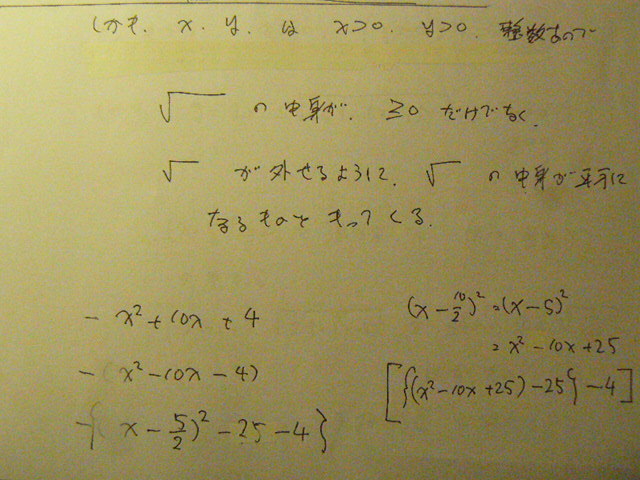 しかも、x、y、は x>0、y>0、整数なので
√ の中身が、≧0 だけでなく、
√ が外せるように、√ の中身が平方に
なるものをもってくる。
- x²+10x+4
- (x²-10x-4)
-{(x-5/2)²-25-4}
(x-10/2)²=(x-5)²
=x²-10x+25
[{(x²-10x+25)-25}-4]